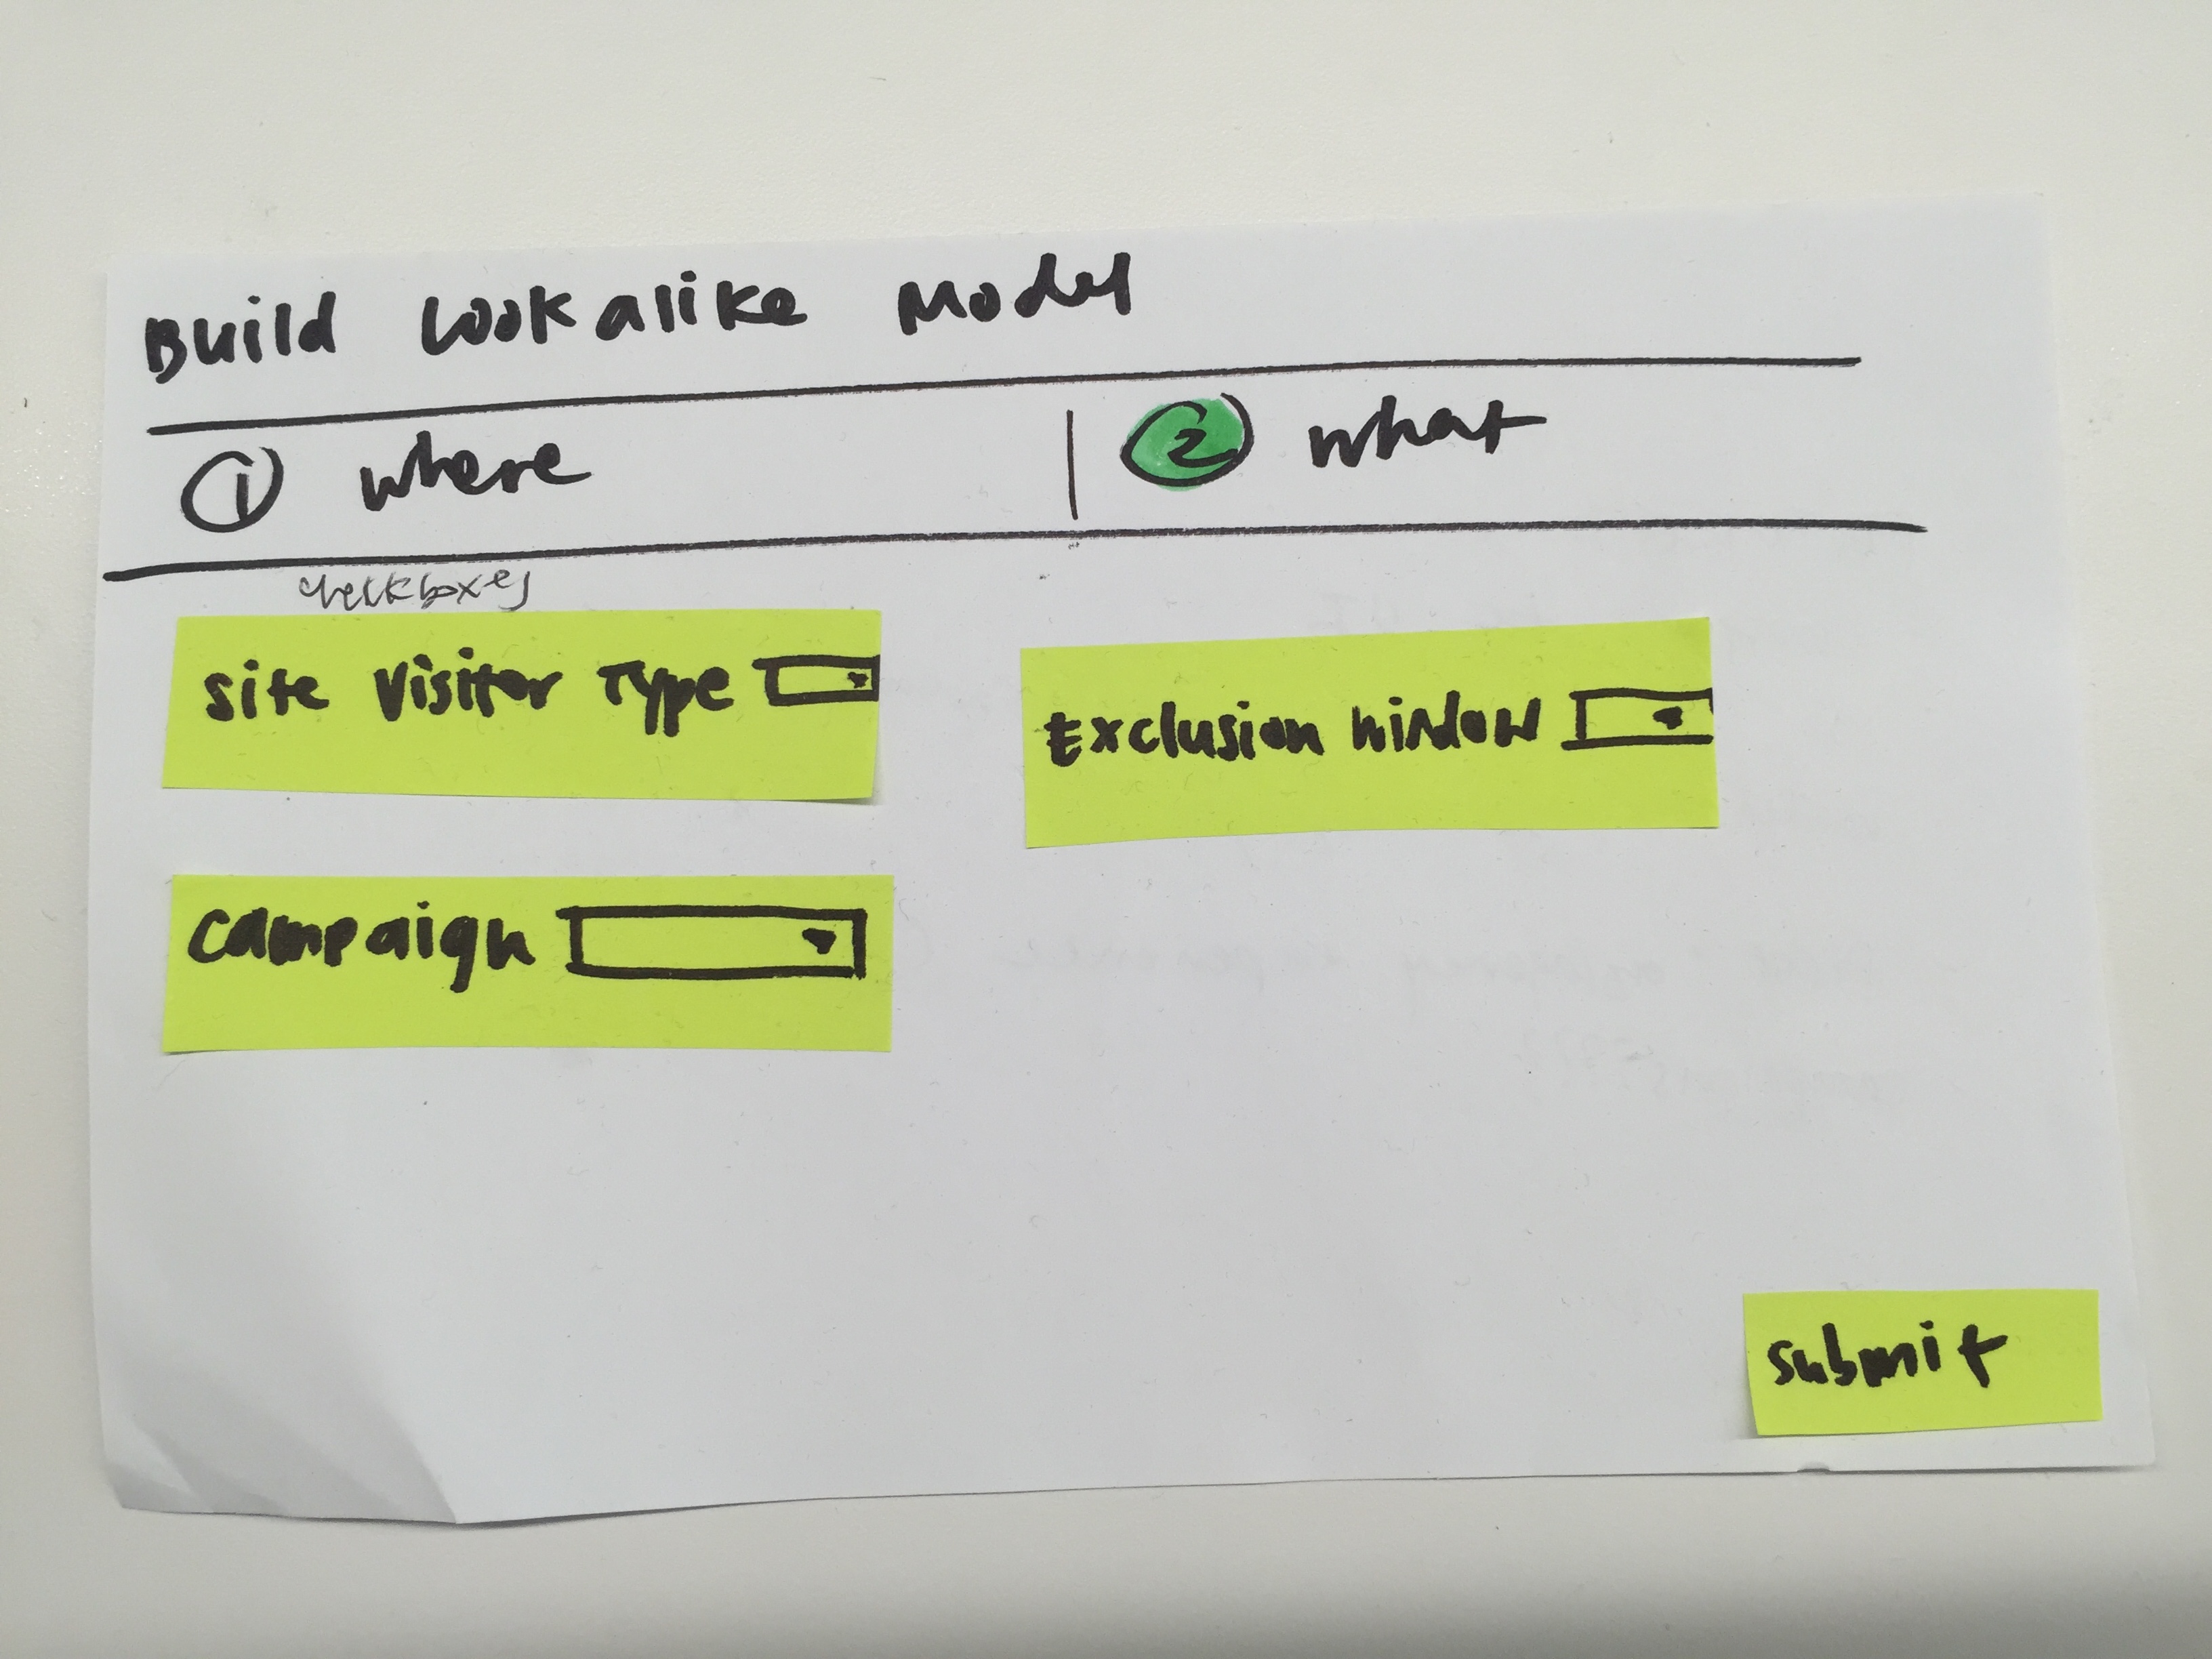 Build Lookalike Model
1 where
2 what
checkboxes
Site Visitor Type
Exclusion Window
Campaign
Submit